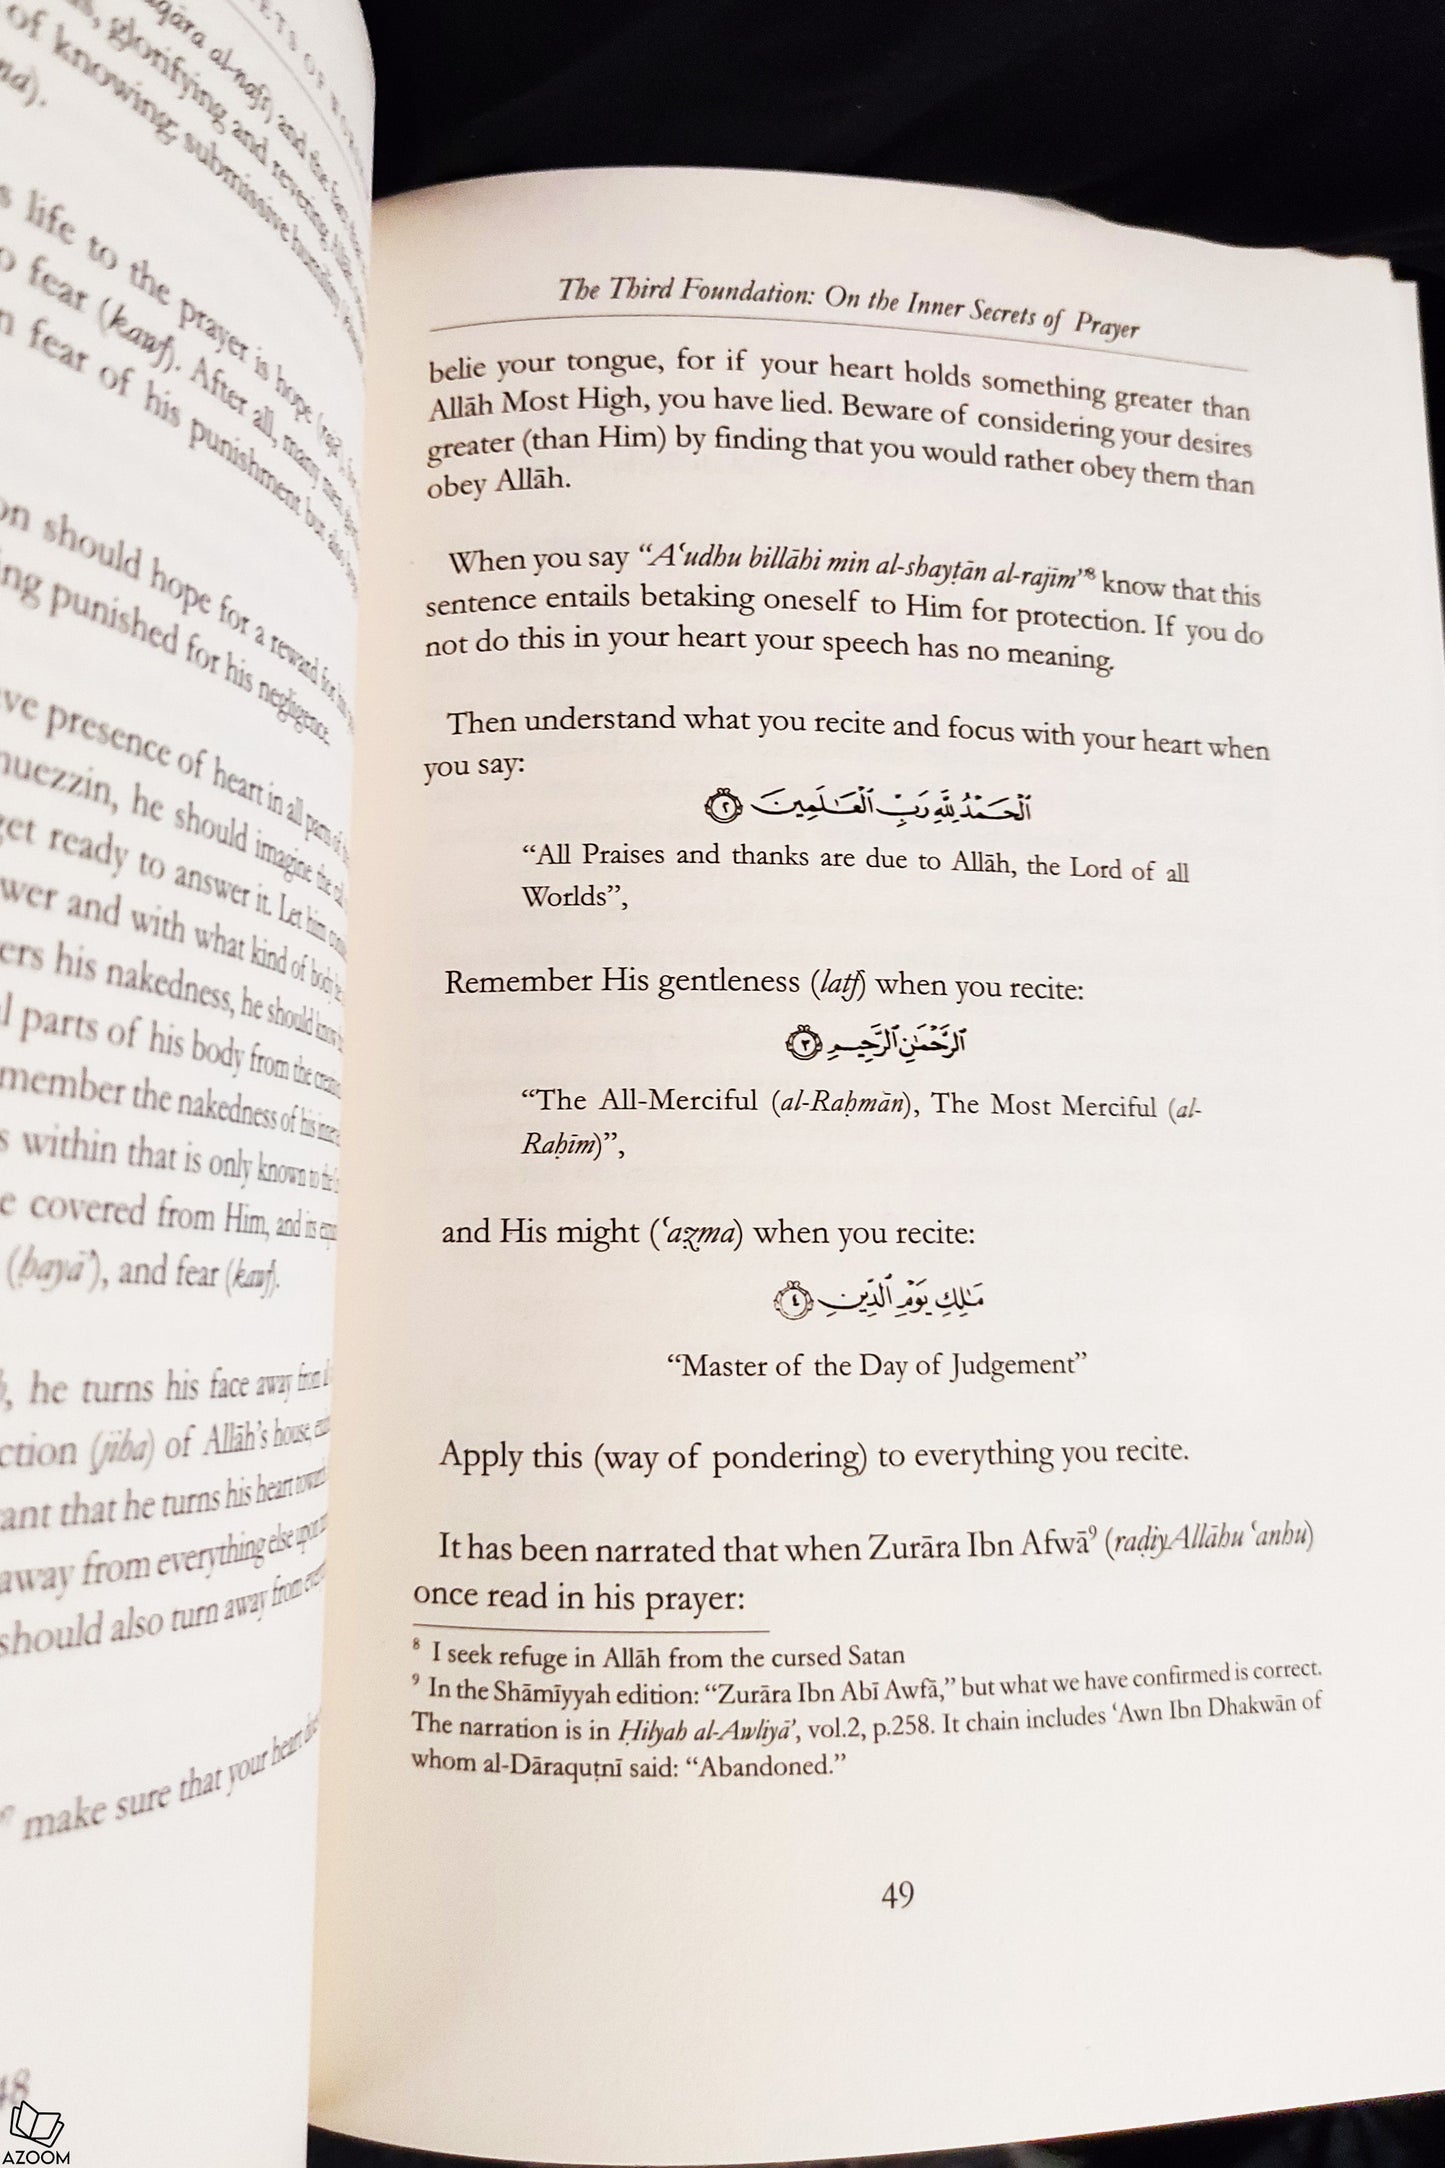 ETS OF WOR
aqāra al-nafs) and the
glorifying and revering Allāh
of knowing, submissive humility
na).
s life to the prayer is hope
o fear (kawf). After all, many men
n fear of his punishment but also
on should hope for a reward for his
ing punished for his negligence.
ve presence of heart in all parts of
nuezzin, he should imagine the call
get ready to answer it. Let him
wer and with what kind of body he
ers his nakedness, he should know
l parts of his body from the
member the nakedness of his inner
s within that is only known to the
e covered from Him, and its
(ḥayā'), and fear (kawf).
he turns his face away from all
ction (jiba) of Allāh's house,
ant that he turns his heart towards
away from everything else upon
should also turn away from
make sure that your heart does
48
AZOOM
The Third Foundation: On the Inner Secrets of Prayer
belie your tongue, for if your heart holds something greater than
Allāh Most High, you have lied. Beware of considering your desires
greater (than Him) by finding that you would rather obey them than
obey Allāh.
When you say “A‘udhu billāhi min al-shayṭān al-rajīm”⁸ know that this
sentence entails betaking oneself to Him for protection. If you do
not do this in your heart your speech has no meaning.
Then understand what you recite and focus with your heart when
you say:
ٱلْحَمْدُ لِلَّهِ رَبِّ ٱلْعَـٰلَمِينَ ٢
“All Praises and thanks are due to Allāh, the Lord of all
Worlds”,
Remember His gentleness (latf) when you recite:
ٱلرَّحْمَـٰنِ ٱلرَّحِيمِ ٣
“The All-Merciful (al-Raḥmān), The Most Merciful (al-
Raḥīm)”,
and His might (‘aẓma) when you recite:
مَـٰلِكِ يَوْمِ ٱلدِّينِ ٤
“Master of the Day of Judgement”
Apply this (way of pondering) to everything you recite.
It has been narrated that when Zurāra Ibn Afwā⁹ (raḍiy Allāhu ‘anhu)
once read in his prayer:
⁸ I seek refuge in Allāh from the cursed Satan
⁹ In the Shāmīyyah edition: “Zurāra Ibn Abī Awfā,” but what we have confirmed is correct.
The narration is in Ḥilyah al-Awliyā’, vol.2, p.258. It chain includes ‘Awn Ibn Dhakwān of
whom al-Dāraquṭnī said: “Abandoned.”
49